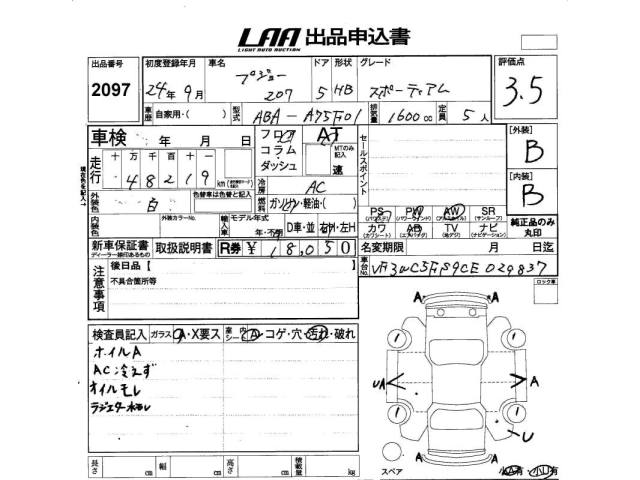 LAA 出品申込書
LIGHT AUTO AUCTION
出品番号 初度登録年月 車名 ドア 形状 グレード 評価点
2097 24年9月 プジョー 207 5 HB スポーティアム 3.5
車歴 自家用・( ) 型式 ABA-A75F01 排気量 1600cc 定員 5人
車検 年 月 日 フロア コラム・ダッシュ AT MTのみ記入 速 セールスポイント [外装] B
走行 十万千百十一 48219 km 冷房 AC [内装] B
外装色 白 色替車は色替と記入 燃料 ガソリン・軽油・( )
内装色 外装カラーNo. 輸入車 モデル年式 年・不明 D車・並 右H・左H
PS PW AW SR 純正品のみ丸印
カワ AB TV ナビ
新車保証書 取扱説明書 R券 ¥18,050 名変期限 月 日迄
ディーラー捺印あるもの
車台No. VF3WC5FS9CE029837
注意事項 後日品【
不具合箇所等
ロック車
検査員記入 ガラス A・X要ス 車内シート A・コゲ・穴・汚れ・破れ
オイルA
AC冷えず
オイルモレ
ラジエター水モレ
A A
1 1
UA A
1 1
U
A A
長さ cm 幅 cm 高さ cm 積載量 kg
スペア 小A有・小U有